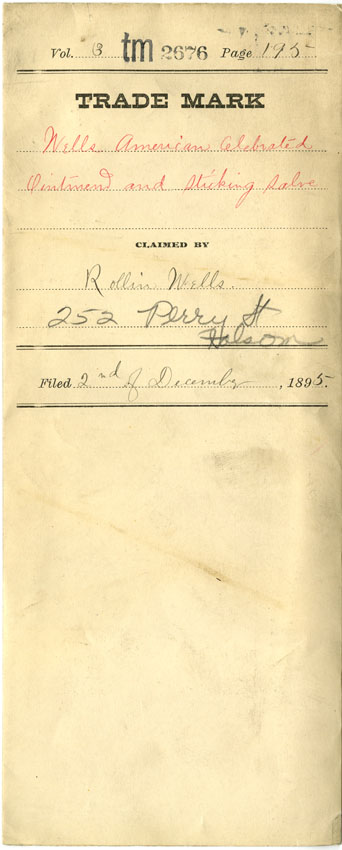 Vol. 3 tm 2676 Page 195
TRADE MARK
Wells American Celebrated
Ointment and Sticking Salve
CLAIMED BY
Rollin Wells.
252 Perry St
Folsom
Filed 2nd of December, 1895.